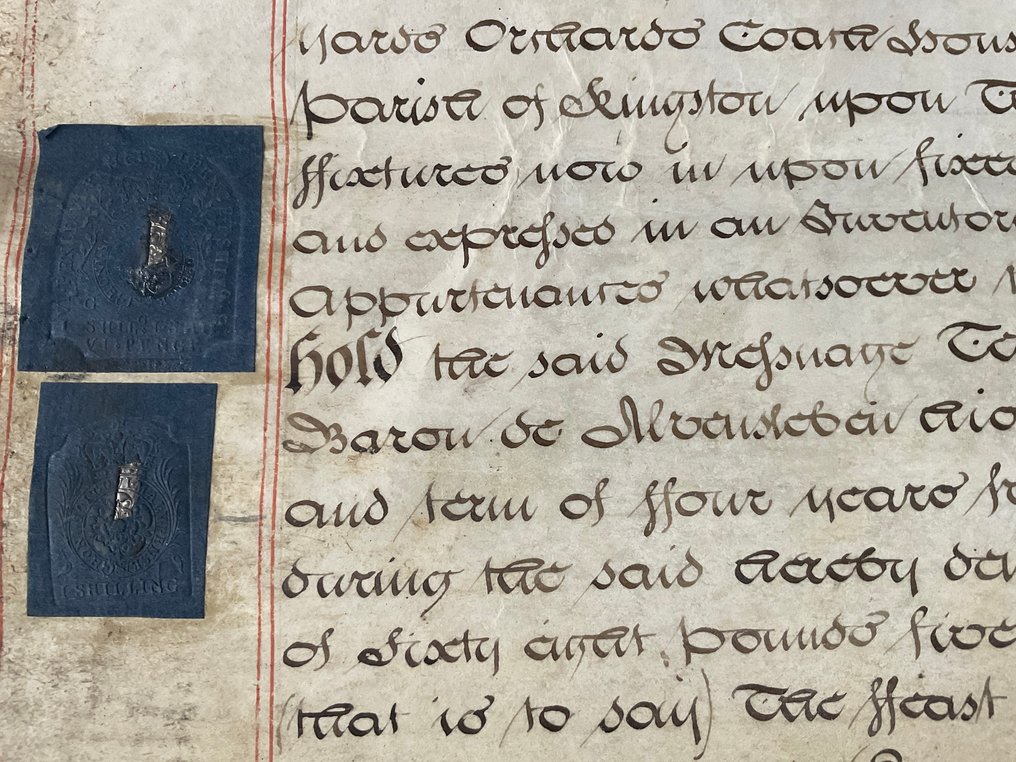 yards Orchards Coach Hous
parish of Kingston upon T
ffixtures now in upon fixed
and expressed in an Inventor
Appurtenances whatsoever
hold the said Messuage Te
Baron de Alvensleben his
and term of ffour years fr
during the said hereby de
of Sixty eight pounds five
(that is to say) The ffeast
I SHILLING
VI PENCE
I SHILLING